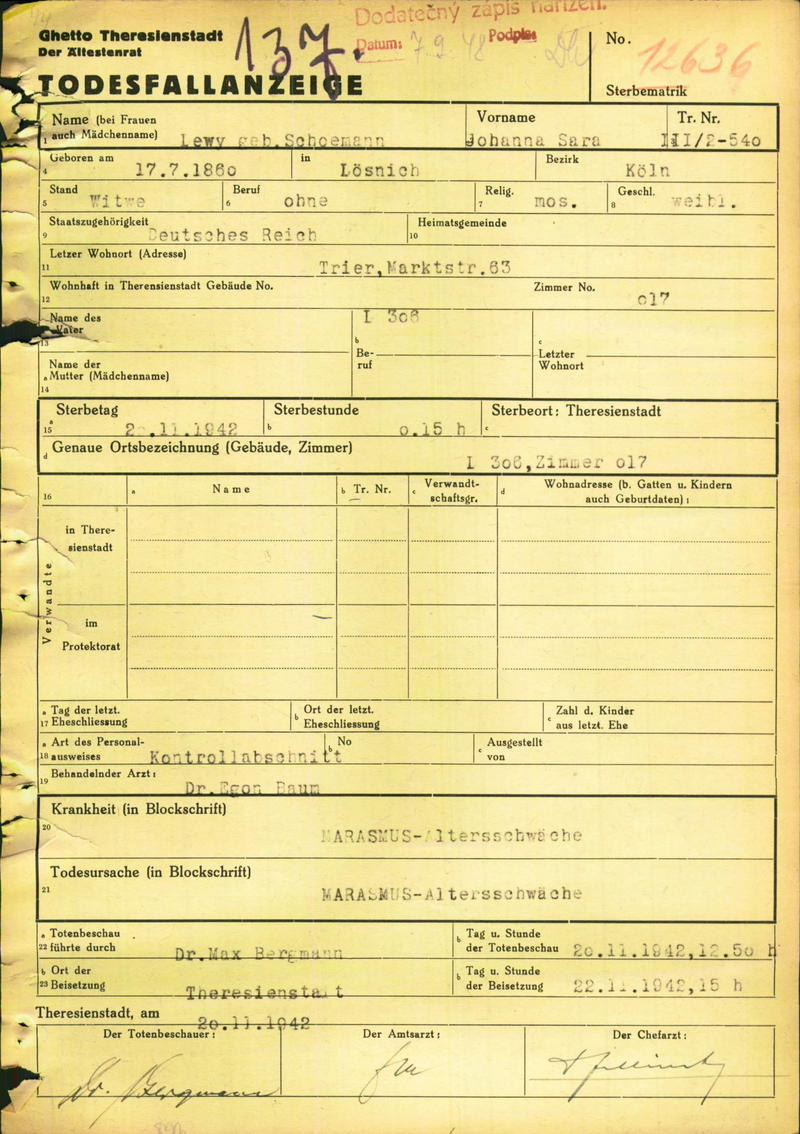 Ghetto Theresienstadt
Der Ältestenrat
137.
Dodatečný zápis nařízen.
Datum: 7 9 48 Podpis
No. 12636
Sterbematrik
TODESFALLANZEIGE
Name (bei Frauen auch Mädchenname) Lewy geb. Schoemann
Vorname Johanna Sara
Tr. Nr. III/2-54o
1
4 Geboren am 17.7.186o in Lösnich Bezirk Köln
5 Stand Witwe 6 Beruf ohne 7 Relig. mos. 8 Geschl. weibl.
9 Staatszugehörigkeit Deutsches Reich 10 Heimatsgemeinde
11 Letzer Wohnort (Adresse) Trier,Marktstr.63
12 Wohnhaft in Theresienstadt Gebäude No. L 3o6 Zimmer No. o17
13 Name des Vater
b Beruf
c Letzter Wohnort
14 a Name der Mutter (Mädchenname)
15 a Sterbetag 2 .11.1942 b Sterbestunde o.15 h c Sterbeort: Theresienstadt
d Genaue Ortsbezeichnung (Gebäude, Zimmer) L 3o6,Zimmer o17
16 a Name b Tr. Nr. c Verwandtschaftsgr. d Wohnadresse (b. Gatten u. Kindern auch Geburtdaten):
Verwandte
in Theresienstadt
im Protektorat
17 a Tag der letzt. Eheschliessung b Ort der letzt. Eheschliessung c Zahl d. Kinder aus letzt. Ehe
18 a Art des Personalausweises Kontrollabschnitt b No c Ausgestellt von
19 Behandelnder Arzt: Dr.Egon Baum
20 Krankheit (in Blockschrift) MARASMUS-Altersschwäche
21 Todesursache (in Blockschrift) MARASMUS-Altersschwäche
22 a Totenbeschau führte durch Dr.Max Bergmann b Tag u. Stunde der Totenbeschau 2o.11.1942,12.5o h
23 b Ort der Beisetzung Theresienstadt b Tag u. Stunde der Beisetzung 22.11.1942,15 h
Theresienstadt, am 2o.11.1942
Der Totenbeschauer: Der Amtsarzt: Der Chefarzt:
Dr. Bergmann